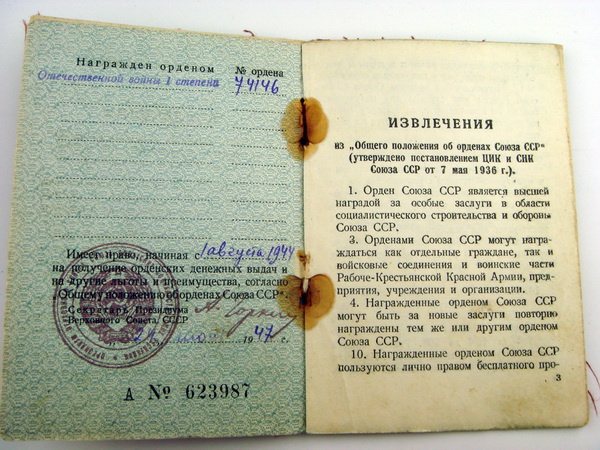 Награжден орденом № ордена
Отечественной войны I степени 74146
Имеет право, начиная 1 августа 1944
на получение орденских денежных выдач и
на другие льготы и преимущества, согласно
„Общему положению об орденах Союза ССР“.
Секретарь Президиума
Верховного Совета СССР
1947 г.
А № 623987
ИЗВЛЕЧЕНИЯ
из „Общего положения об орденах Союза ССР“
(утверждено постановлением ЦИК и СНК
Союза ССР от 7 мая 1936 г.).
1. Орден Союза ССР является высшей
наградой за особые заслуги в области
социалистического строительства и обороны
Союза ССР.
3. Орденами Союза ССР могут награ-
ждаться как отдельные граждане, так и
войсковые соединения и воинские части
Рабоче-Крестьянской Красной Армии, пред-
приятия, учреждения и организации.
4. Награжденные орденом Союза ССР
могут быть за новые заслуги повторно
награждены тем же или другим орденом
Союза ССР.
10. Награжденные орденом Союза ССР
пользуются лично правом бесплатного про-
3